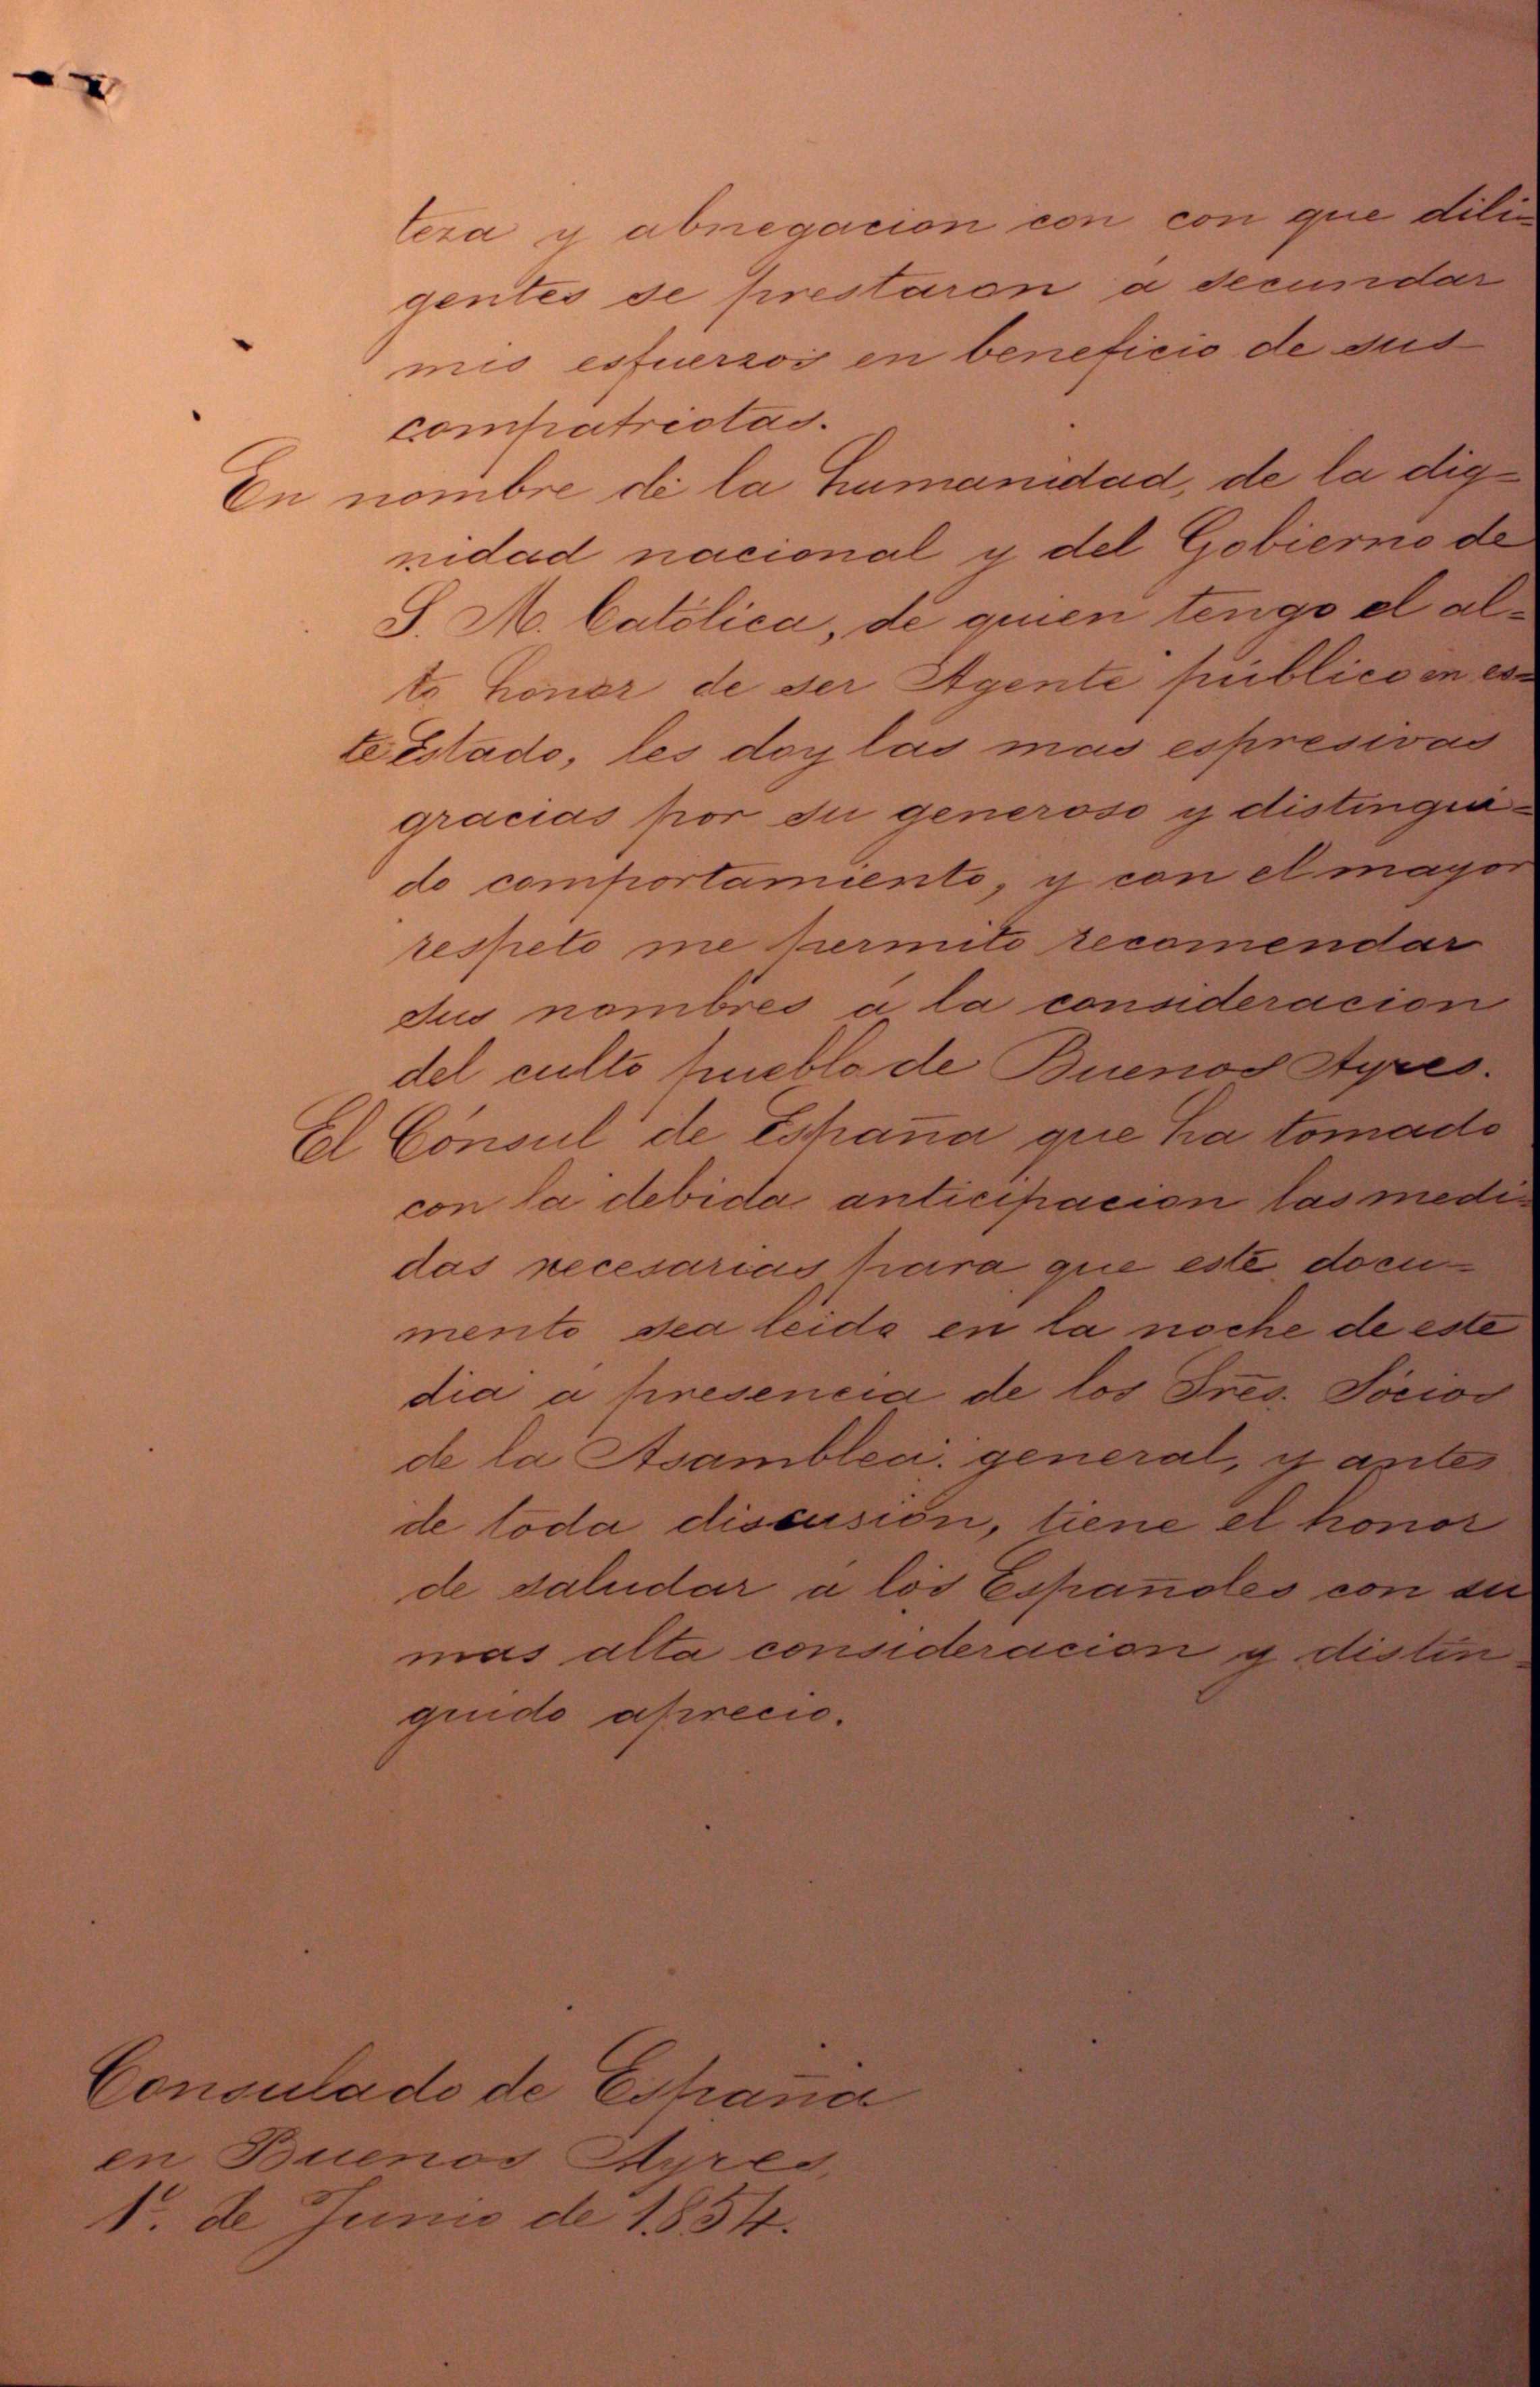 teza y abnegacion con con que dili=
gentes se prestaron á secundar
mis esfuerzos en beneficio de sus
compatriotas.
En nombre de la humanidad, de la dig=
nidad nacional y del Gobierno de
S. M. Católica, de quien tengo el al=
to honor de ser Agente público en es=
te Estado, les doy las mas espresivas
gracias por su generoso y distingui=
do comportamiento, y con el mayor
respeto me permito recomendar
sus nombres á la consideracion
del culto pueblo de Buenos Ayres.
El Cónsul de España que ha tomado
con la debida anticipacion las medi=
das necesarias para que este docu=
mento sea leido en la noche de este
dia á presencia de los Sres. Sócios
de la Asamblea general, y antes
de toda discusion, tiene el honor
de saludar á los Españoles con su
mas alta consideracion y distin=
guido aprecio.
Consulado de España
en Buenos Ayres,
1º. de Junio de 1.854.